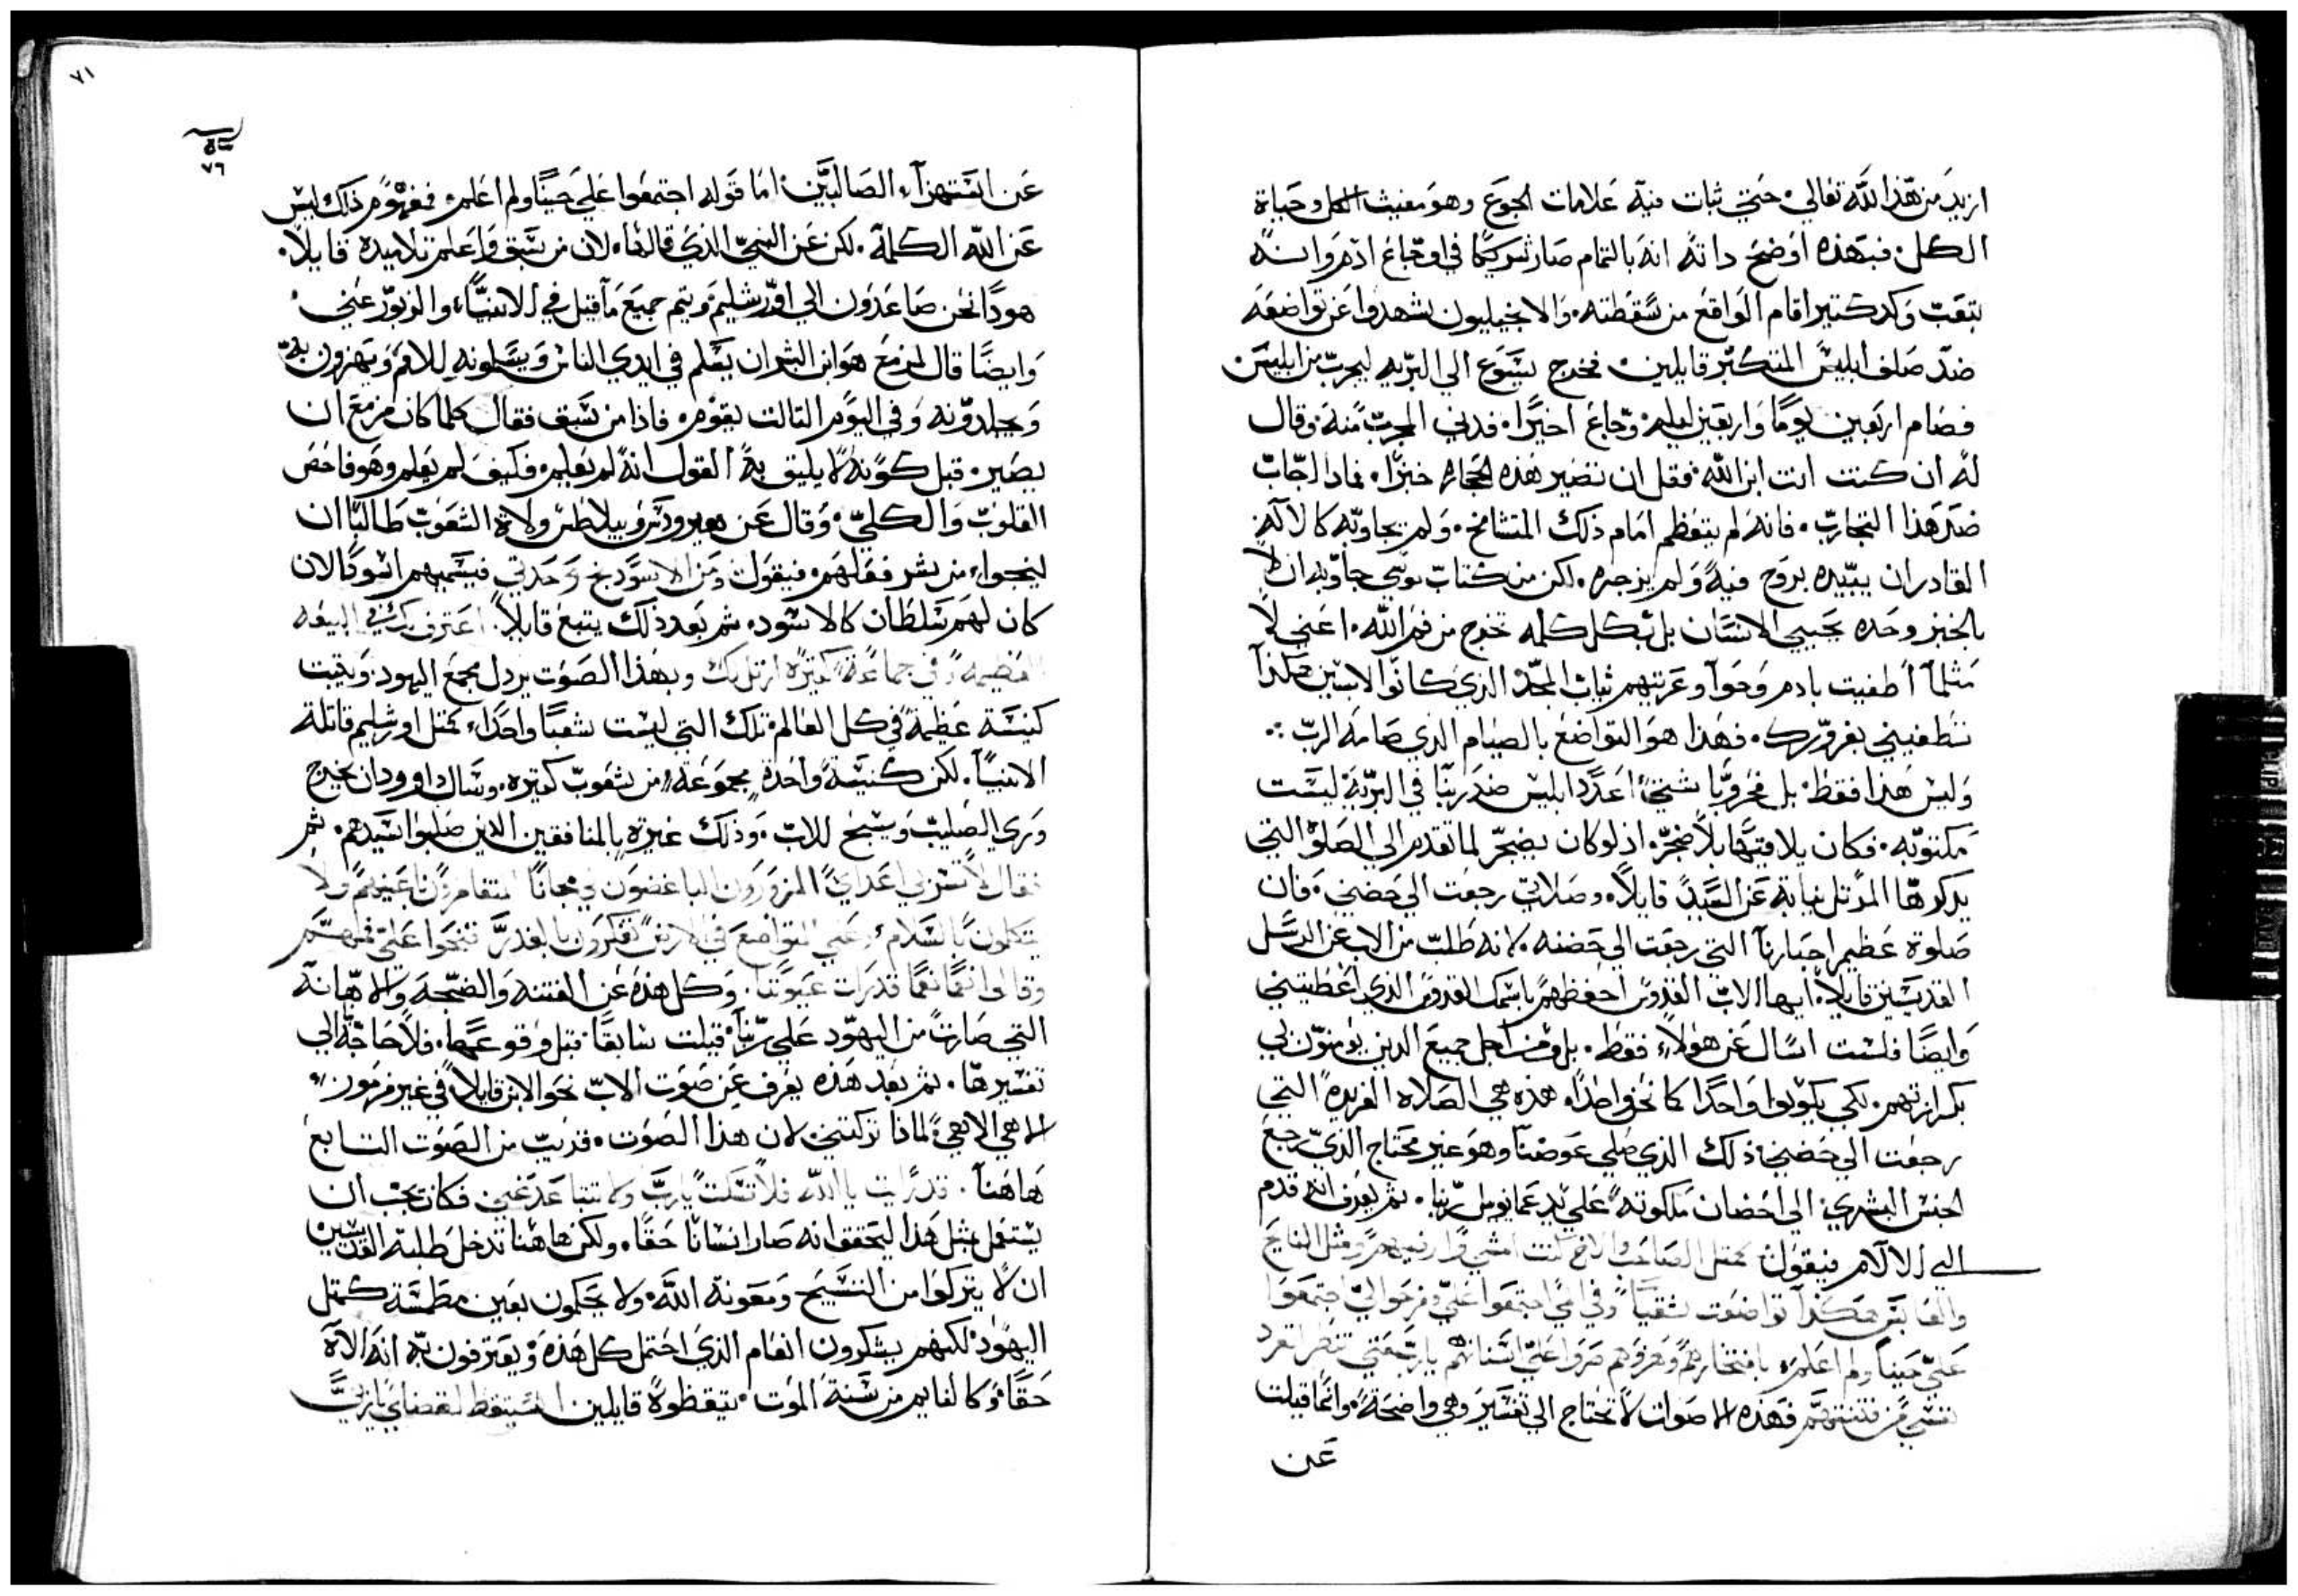 ازيد من هذا لله تعالي حتي ثبات فيه علامات الجوع وهو مغيث الكل وحياة
الكل فبهذه اوضح داته انه بالتمام صار شريكا في اوجاع ادم وانه
بتعب وكد كتير اقام الواقع من سقطته والانجيليون يشهدوا عن تواضعه
ضد صلف ابليس المتكبر قايلين فخرج يسوع الي البريه ليجرب من ابليس
فصام اربعين يوما واربعين ليله وجاع اخيرا فدني المجرب منه وقال
له ان كنت انت ابن الله فقل ان تصير هذه الحجاره خبزا فماذا اجاب
ضد هذا التجارب فانه لم يتعظم امام ذلك المتشامخ ولم يجاوبه كالاله
القادر ان يبيده بروح فيه ولم يزجره لكن من كتاب موسي جاوبه ان لا
بالخبز وحده يحيي الانسان بل بكل كلمه تخرج من فم الله اعني لا
مثلما اطغيت بادم وحوا وعريتهم ثياب المجد الذي كانوا لابسين هكذا
تطغيني بغرورك فهذا هو التواضع بالصيام الذي صامه الرب
وليس هذا فقط بل حروبا شتي اعدد ابليس ضد ربنا في البرية ليست
مكتوبه فكان يلاقيها بلا ضجر اذ لو كان يضجر لما تقدم الي الصلوة التي
يدكرها المرتل نيابة عن السيد قايلا وصلاتي رجعت الي حضني فان
صلوة عظيم احبارنا التي رجعت الي حضنه لانه طلب من الاب عن الرسل
القديسين قايلا ايها الاب القدوس احفظهم باسمك القدوس الذي اعطيتني
وايضا فلست اسال عن هولاء فقط بل ومن اجل جميع الدين يومنون بي
بكرازتهم لكي يكونوا واحدا كما نحن واحدا هذه هي الصلاه الفريده التي
رجعت الي حضني ذلك الذي صلي عوضنا وهو غير محتاج الذي رجع
الجنس البشري الي احضان ملكوته علي يد عمانويل ربنا ثم يعرف انه قدم
الي الالام فيقول كمتل الصاحب والاخ كنت امشي وارضيهم ومتل النايح
والعابس هكذا تواضعت شقيا وفي امي اجتمعوا علي وفرحوا الي اجتمعوا
علي حينا ولم اعلم بافتخارهم وهزوهم صروا علي اسنانهم يا رب متي تنظر انفرد
نفسي من فتنتهم فهذه الاصوات لا تحتاج الي تفسير وهي واضحة وانما قيلت
عن
٧١
٧٦
عن استهزاء الصالبين اما قوله اجتمعوا علي حينا ولم اعلم فمفهوم ذلك ليس
عن الله الكلمة لكن عن النبي الذي قالها لان من سبق واعلم تلاميده قايلا
هودا نحن صاعدون الي اورشليم ويتم جميع ما قيل في الانبياء والزبور عني
وايضا قال مزمع هو ابن البشر ان يسلم في ايدي الناس ويسلمونه للامم ويهزون به
ويجلدونه وفي اليوم التالت يقوم فاذا من سبق فقال كلما كان مزمع ان
يصير قبل كونه لا يليق به القول انه لم يعلم فكيف لم يعلم وهو فاحص
القلوب والكلي وقال عن هيرودس وبيلاطس ولاة الشعوب طالبا ان
لينجوا من شر فعالهم فيقول ومن الاسود نج وحدتي فيسميهم اسوداً لان
كان لهم سلطان كالاسود ثم بعد ذلك يتبع قايلا اعترف لك في البيعه
العظيمه وفي جماعة كثيره ارتل لك وبهذا الصوت يردل مجمع اليهود ويتبت
كنيسة عظيمة في كل العالم تلك التي ليست شعبا واحدا كمتل اورشليم قاتلة
الانبياء لكن كنيسة واحدة مجموعة من شعوب كتيره وسال داوود ان يخرج
ويري الصليب ويسبح للاب وذلك غيرة بالمنافقين الذين صلبوا سيدهم ثم
فقال لا تسر بي اعداي المزورون الباغضون لي مجانا المتغامزون باعينهم ولا
يتكلمون بالسلام وعلي المتواضع في الارض تفكرون بالغدر فتحوا علي فمهم
وقالوا نعما نعما قد رات عيوننا وكل هذه عن الفتنه والضجه والاهانه
التي صارت من اليهود علي ربنا قيلت سابقا قبل وقوعها فلا حاجه الي
تفسيرها ثم بعد هذه يعرف عن صوت الاب نحو الابن قايلا في غير مزمور
الاهي الاهي لماذا تركتني لان هذا الصوت قريب من الصوت التابع
هاهنا قد رايت يا الله فلا تسكت يا رب ولا تتباعد عني فكان يجب ان
يستعمل مثل هذا ليحقق انه صار انسانا حقا ولكن هاهنا تدخل طلبة القديسين
ان لا يتركوا من التسبيح ومعونة الله ولا يحكمون بعين مطمسة كمتل
اليهود لكنهم يشكرون انعام الذي احتمل كل هذه ويعترفون به انه الاه
حقا وكالنايم من سنة الموت يتيقظوه قايلين استيقظ لقضاي يا ربي